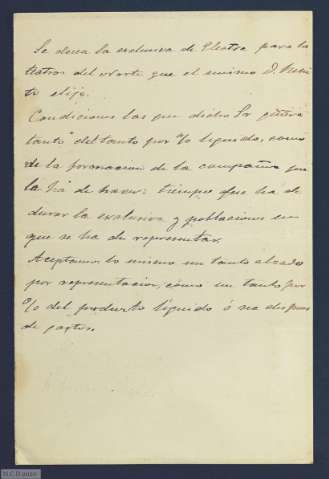 Se desea la exclusiva de Electra para los
teatros del norte que el mismo D. Beni
to elija.
Condiciones las que dicho Sr quiera
tanto del tanto por % liquido, como
de la formacion de la compañia que
la há de hacer; tiempo que ha de
durar la exclusiva y poblaciones en
que se ha de representar.
Aceptamos lo mismo un tanto alzado
por representacion, como un tanto por
% del producto liquido ó sea despues
de gastos.